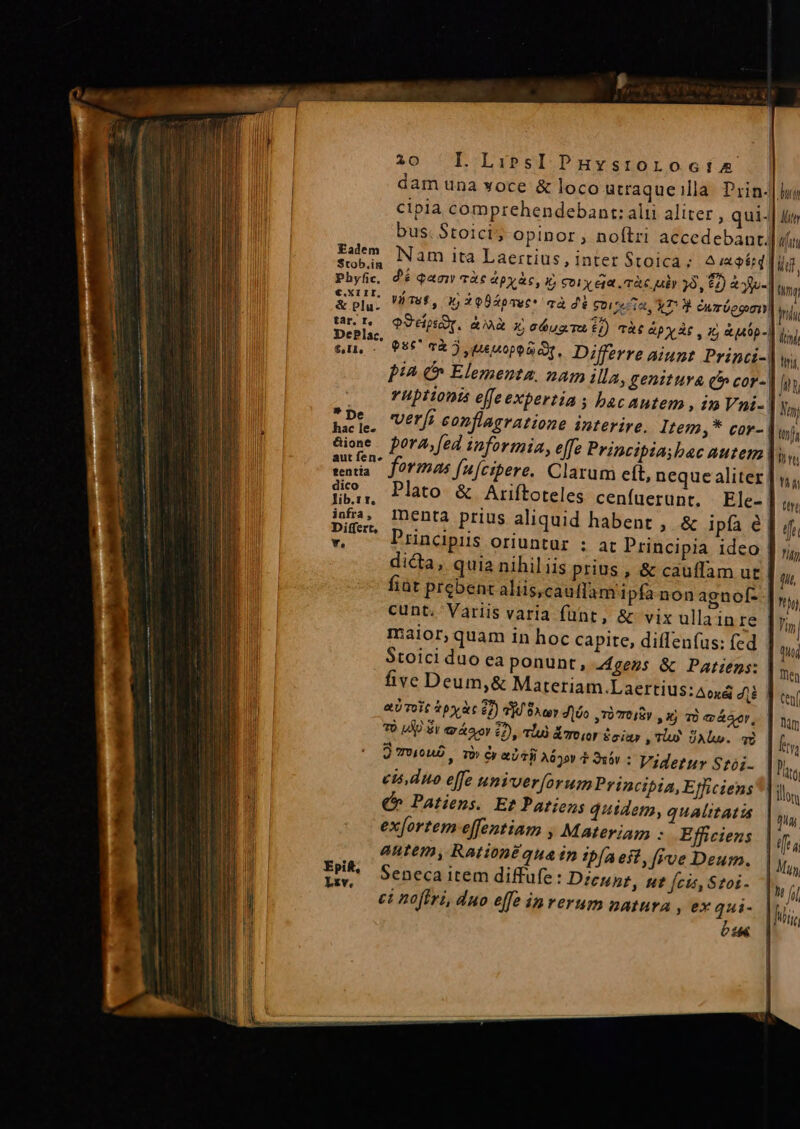 20 I. LipsI Physiologiæ
dam una voce & loco utraque illa Prin-
cipia comprehendebant: alii aliter, qui-
bus Stoici, opinor, noſtri accedebant.
Eadem
Stob. in
Phyſic.
c. XIII.
& Plu-
tar. 1.
De Plac.
Nam ita Laertius, inter Stoica: Διαφέρειν
δέ φασιν τὰς ἀρχὰς, κὶ στοιχεῖα. τὰς μὲν γὸ, εἶναι ἀγεν-
νήτους, κὶ ἀφθάρτους· τὰ δὲ στοιχεῖα, κατὰ τ ἐκπύρωσιν
φθείρεσθαι. ἀλλὰ κὶ σώματα εἶναι τὰς ἀρχὰς, κὶ ἀμόρ-
φους· τὰ δὲ, μεμορφῶσθαι. Differre aiunt Princi-
pia & Elementa. nam illa, genitura & cor-
ruptionis eſſe expertia; hac autem, in Vni-
* De
hac le-
ctione
aut ſen-
tentia
dico
lib. 11.
infra,
Differt.
V.
verſi conflagratione interire. Item,* cor-
pora, ſed informia, eſſe Principia; hac autem
formas ſuſcipere. Clarum eſt, neque aliter
Plato & Ariſtoteles cenſuerunt. Ele-
menta prius aliquid habent, & ipſa è
Principiis oriuntur: at Principia ideo
dicta, quia nihil iis prius, & cauſſam ut
ſint prębent aliis, cauſſam ipſa non agnoſ-
cunt. Variis varia ſunt, & vix ulla in re
maior, quam in hoc capite, diſſenſus: ſed
Stoici duo ea ponunt, Agens & Patiens:
ſive Deum, & Materiam. Laertius: Δοκεῖ δὲ
αὐτοῖς ἀρχὰς εἶναι τῶν ὅλων δύο, τὸ ποιοῦν, κὶ τὸ πάσχον.
τὸ μὲν οὖν πάσχον εἶναι, τὴν ἄποιον ἐσίαν, τὴν ὕλην. τὸ
δὲ ποιοῦν, τὸν ἐν αὐτῇ λόγον τ θεόν: Videtur Stoi-
cis, duo eſſe univerſorum Principia, Efficiens
& Patiens. Et Patiens quidem, qualitatis
exſortem eſſentiam, Materiam: Efficiens
autem, Rationẽ qua in ipſa eſt, ſive Deum.
Epiſt.
LXV.
Seneca item diffuſe: Dicunt, ut ſcis, Stoi-
ci noſtri, duo eſſe in rerum natura, ex qui-
bus